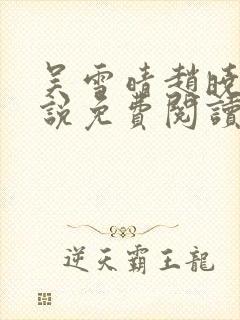 吴雪晴趙曉
說免費閱讀
逆天霸王龍